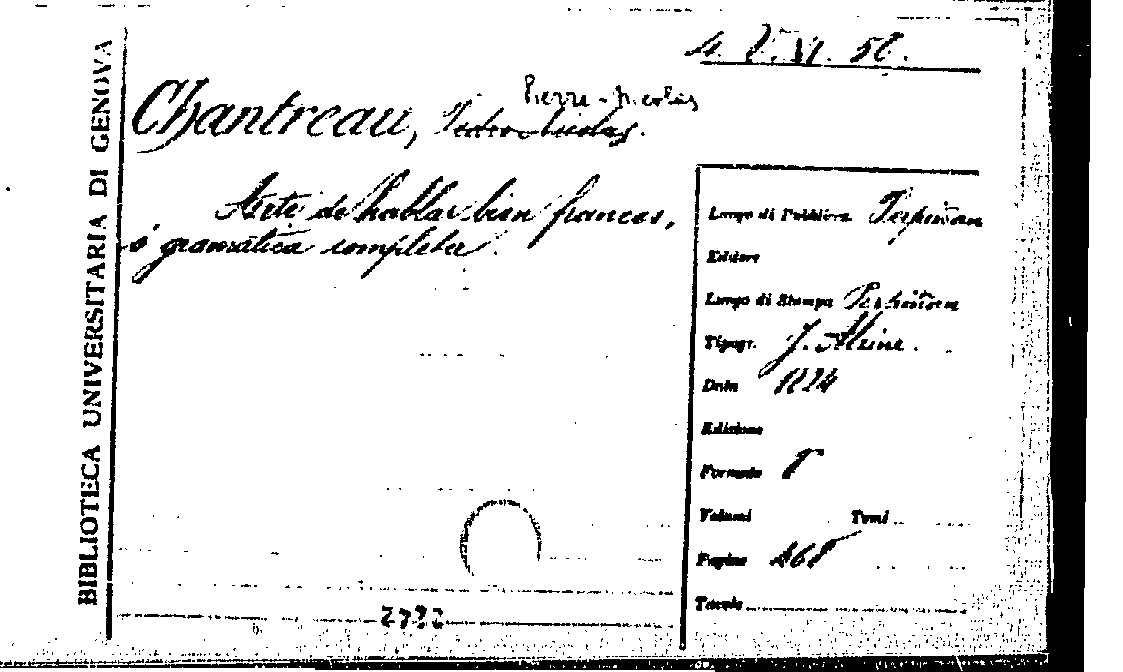 BIBLIOTECA UNIVERSITARIA DI GENOVA
4. V. VI. 58.
Pierre-Nicolas
Chantreau, Pedro Nicolas.
Arte de hablar bien frances,
ó gramatica completa.
Luogo di Pubblico Perpiñan
Editore
Luogo di Stampa Perpiñan
Tipogr. J. Alzine.
Data 1824
Edizione
Formato 8°
Volumi Tomi
Pagine 468
Tavole